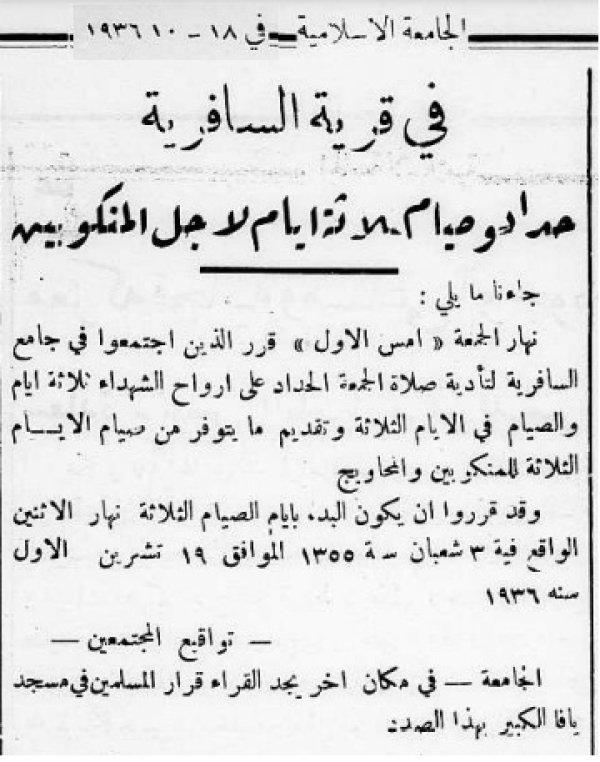 الجامعة الاسلامية في ١٨ - ١٠ ١٩٣٦
في قرية السافرية
حداد وصيام ثلاثة ايام لاجل المنكوبين
جاءنا ما يلي :
نهار الجمعة « امس الاول » قرر الذين اجتمعوا في جامع
السافرية لتأدية صلاة الجمعة الحداد على ارواح الشهداء ثلاثة ايام
والصيام في الايام الثلاثة وتقديم ما يتوفر من صيام الايـــام
الثلاثة للمنكوبين والمحاويج
وقد قرروا ان يكون البدء بايام الصيام الثلاثة نهار الاثنين
الواقع فية ٣ شعبان سنة ١٣٥٥ الموافق ١٩ تشرين الاول
سنه ١٩٣٦
— تواقيع المجتمعين —
الجامعة — في مكان اخر يجد القراء قرار المسلمين في مسجد
يافا الكبير بهذا الصدد